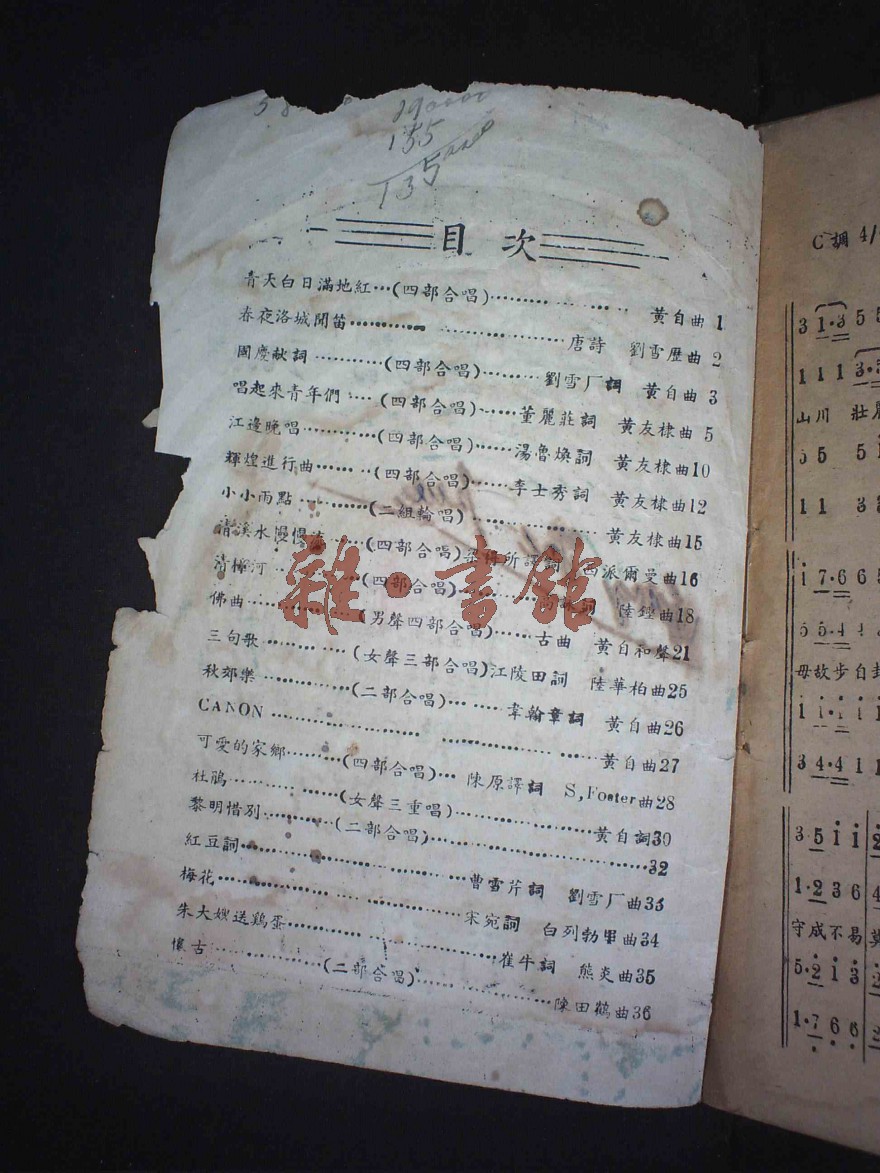 190000
155
135000
目次
青天白日滿地紅…(四部合唱)……… 黃自曲 1
春夜洛城聞笛……… 唐詩 劉雪厈曲 2
國慶献詞………(四部合唱)……劉雪厂詞 黃自曲 3
唱起來青年們…(四部合唱)……董麗莊詞 黃友棣曲 5
江邊晚唱………(四部合唱)……湯魯煥詞 黃友棣曲10
輝煌進行曲……(四部合唱)……李士秀詞 黃友棣曲12
小小雨點………(二組輪唱)……… 黃友棣曲15
清溪水慢慢流…(四部合唱) 西派爾曼曲16
清檸河………(四部合唱) 陸鍠曲18
佛曲………(男聲四部合唱)……古曲 黃自和聲21
三句歌………(女聲三部合唱)江陵田詞 陸華柏曲25
秋郊樂………(二部合唱)……韋瀚章詞 黃自曲26
CANON……… 黃自曲27
可愛的家鄉………(四部合唱)…陳原譯詞 S,Foster曲28
杜鵑………(女聲三重唱)………黃自詞30
黎明惜別………(二部合唱)………32
紅豆詞………曹雪芹詞 劉雪厂曲33
梅花………宋宛詞 白列勃里曲34
朱大嫂送鷄蛋………崔牛詞 熊炎曲35
懷古………(二部合唱)………陳田鶴曲36
雜·書館
C調 4/
3 1·3 5 5
1 1 1 3·3
山川 壯麗
5 5 5 i
1 1 3
i 7·6 6
5 5·4
毋故步自封
i i·i i
3 4·4 1
3·5 i i 2
1·2 3 6 4
守成不易 莫
5·2 i 3
1·7 6 6